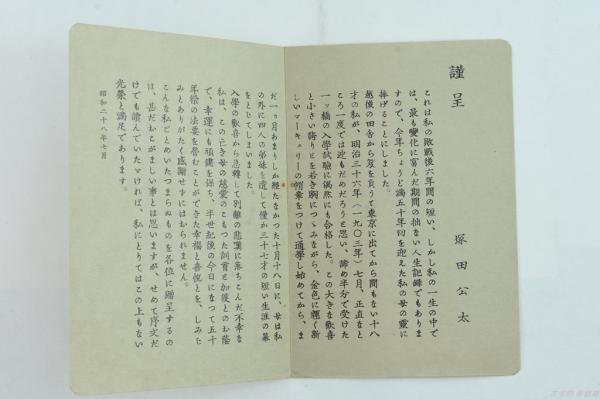 謹呈
塚田公太
これは私の敗戦後六年間の短い、しかし私の一生の中で
は、最も變化に富んだ期間の拙ない人生記録でもありま
すので、今年ちょうど満五十年囘を迎えた私の母の靈に
捧げることにしました。
越後の田舎から笈を負うて東京に出てから間もない十八
才の私が、明治三十六年(一九〇三年)七月、正直なと
ころ一度では迚もだめだろうと思い、諦め半分で受けた
一ッ橋の入學試驗に偶然にも合格した。この大きな歡喜
と小さい誇りとを若き胸につゝみながら、金色に輝く新
しいマーキュリーの帽章をつけて通學し始めてから、ま
だ一ヵ月あまりしか經たなかつた十月十八日に、母は私
の外に四人の弟妹を遺して僅か三十七才の短い生涯の幕
をとじてしまいました。
入學の歡喜から急轉して別離の悲嘆に落ちこんだ不幸な
私は、この亡き母の慈愛のこもつた訓育と加護とのお蔭
で、幸運にも頑健を保ち、半世紀後の今日になつて五十
年祭の法要を營むことができた幸福と喜悦とを、しみじ
みとありがたく感謝せずにはおられません。
こんな私ごとめいたつまらぬものを各位に贈呈するの
は、甚だおこがましい事とは思いますが、せめて序文だ
けでも讀んでいたゞければ、私にとりてはこの上もない
光榮と満足であります。
昭和二十八年七月